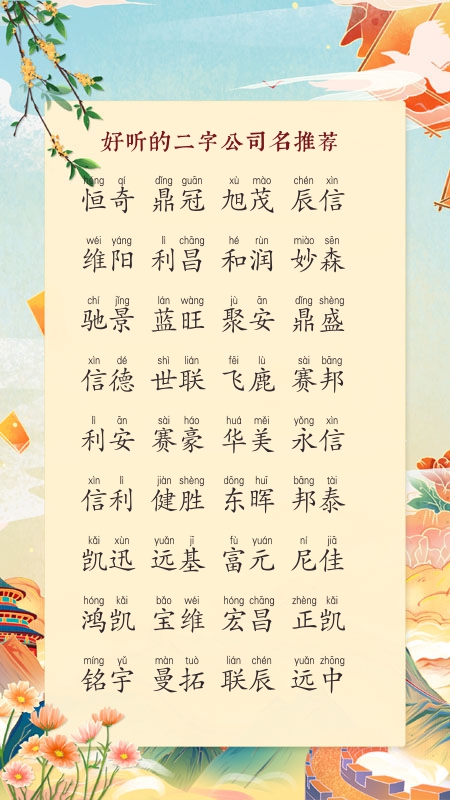 好听的二字公司名推荐
héng qí dǐng guān xù mào chén xìn
恒奇 鼎冠 旭茂 辰信
wéi yáng lì chāng hé rùn miào sēn
维阳 利昌 和润 妙森
chí jǐng lán wàng jù ān dǐng shèng
驰景 蓝旺 聚安 鼎盛
xìn dé shì lián fēi lù sài bāng
信德 世联 飞鹿 赛邦
lì ān sài háo huá měi yǒng xìn
利安 赛豪 华美 永信
xìn lì jiàn shèng dōng huī bāng tài
信利 健胜 东晖 邦泰
kǎi xùn yuǎn jī fù yuán ní jiā
凯迅 远基 富元 尼佳
hóng kǎi bǎo wéi hóng chāng zhèng kǎi
鸿凯 宝维 宏昌 正凯
míng yǔ màn tuò lián chén yuǎn zhōng
铭宇 曼拓 联辰 远中